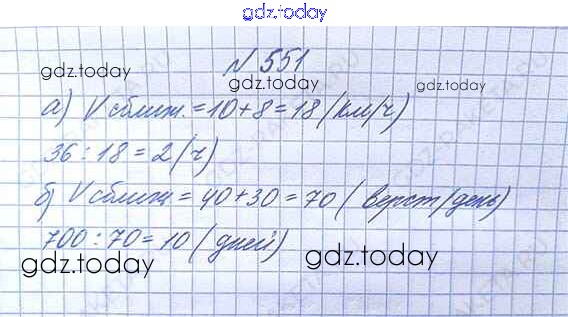 gdz.today
№ 551
gdz.today gdz.today gdz.today
а) Vсближ. = 10 + 8 = 18 (км/ч)
36 : 18 = 2 (ч)
б) Vсближ = 40 + 30 = 70 (верст/день)
700 : 70 = 10 (дней)
gdz.today gdz.today